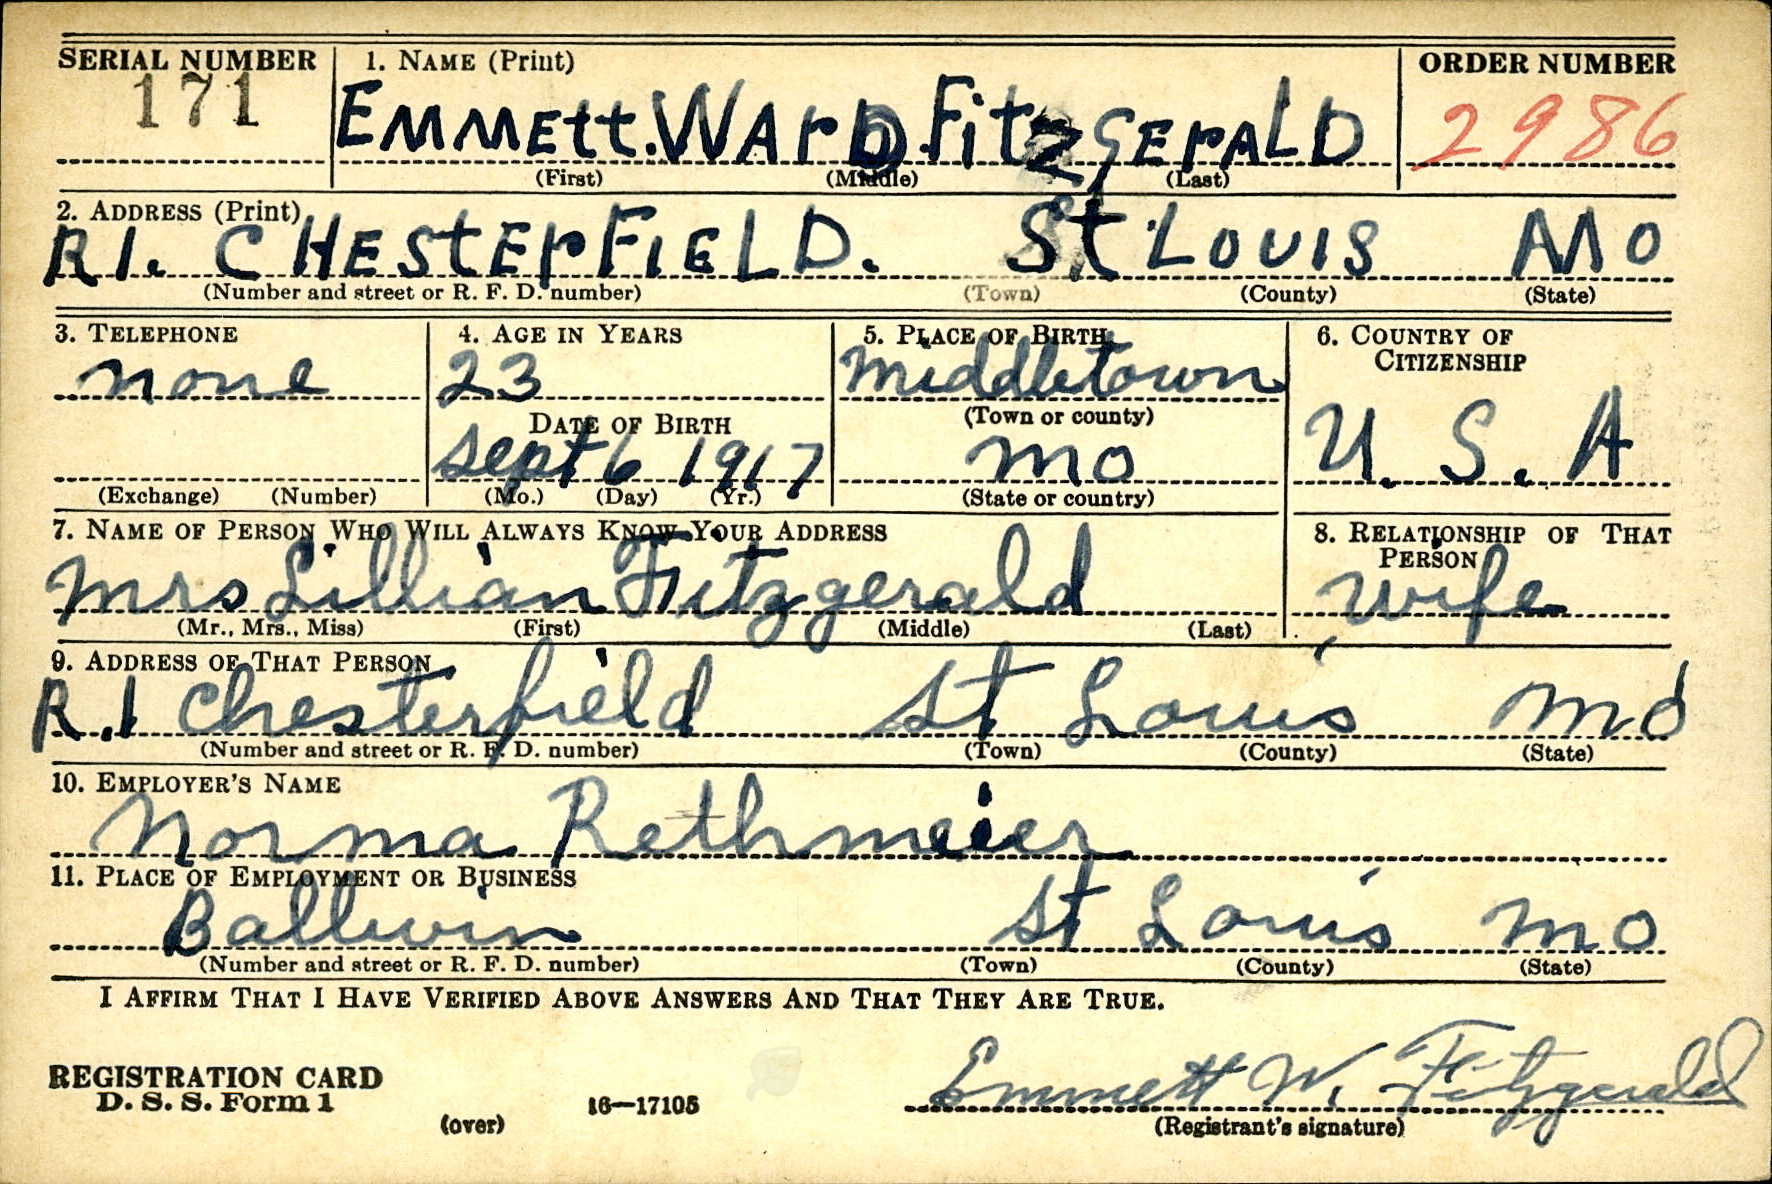 SERIAL NUMBER 1. NAME (Print) ORDER NUMBER
171 EMMEtt. WArD. FitzGErALD 2986
(First) (Middle) (Last)
2. ADDRESS (Print)
R1. CHEStErFiELD. St. LOUIS MO
(Number and street or R. F. D. number) (Town) (County) (State)
3. TELEPHONE 4. AGE IN YEARS 5. PLACE OF BIRTH 6. COUNTRY OF CITIZENSHIP
none 23 Middletown
DATE OF BIRTH (Town or county) U. S. A
Sept 6 1917 Mo
(Exchange) (Number) (Mo.) (Day) (Yr.) (State or country)
7. NAME OF PERSON WHO WILL ALWAYS KNOW YOUR ADDRESS 8. RELATIONSHIP OF THAT PERSON
Mrs Lillian Fitzgerald wife
(Mr., Mrs., Miss) (First) (Middle) (Last)
9. ADDRESS OF THAT PERSON
R.1 Chesterfield St Louis Mo
(Number and street or R. F. D. number) (Town) (County) (State)
10. EMPLOYER'S NAME
Norma Rethmeier
11. PLACE OF EMPLOYMENT OR BUSINESS
Ballwin St Louis Mo
(Number and street or R. F. D. number) (Town) (County) (State)
I AFFIRM THAT I HAVE VERIFIED ABOVE ANSWERS AND THAT THEY ARE TRUE.
REGISTRATION CARD Emmett W. Fitzgerald
D. S. S. Form 1 (over) 16—17105 (Registrant's signature)